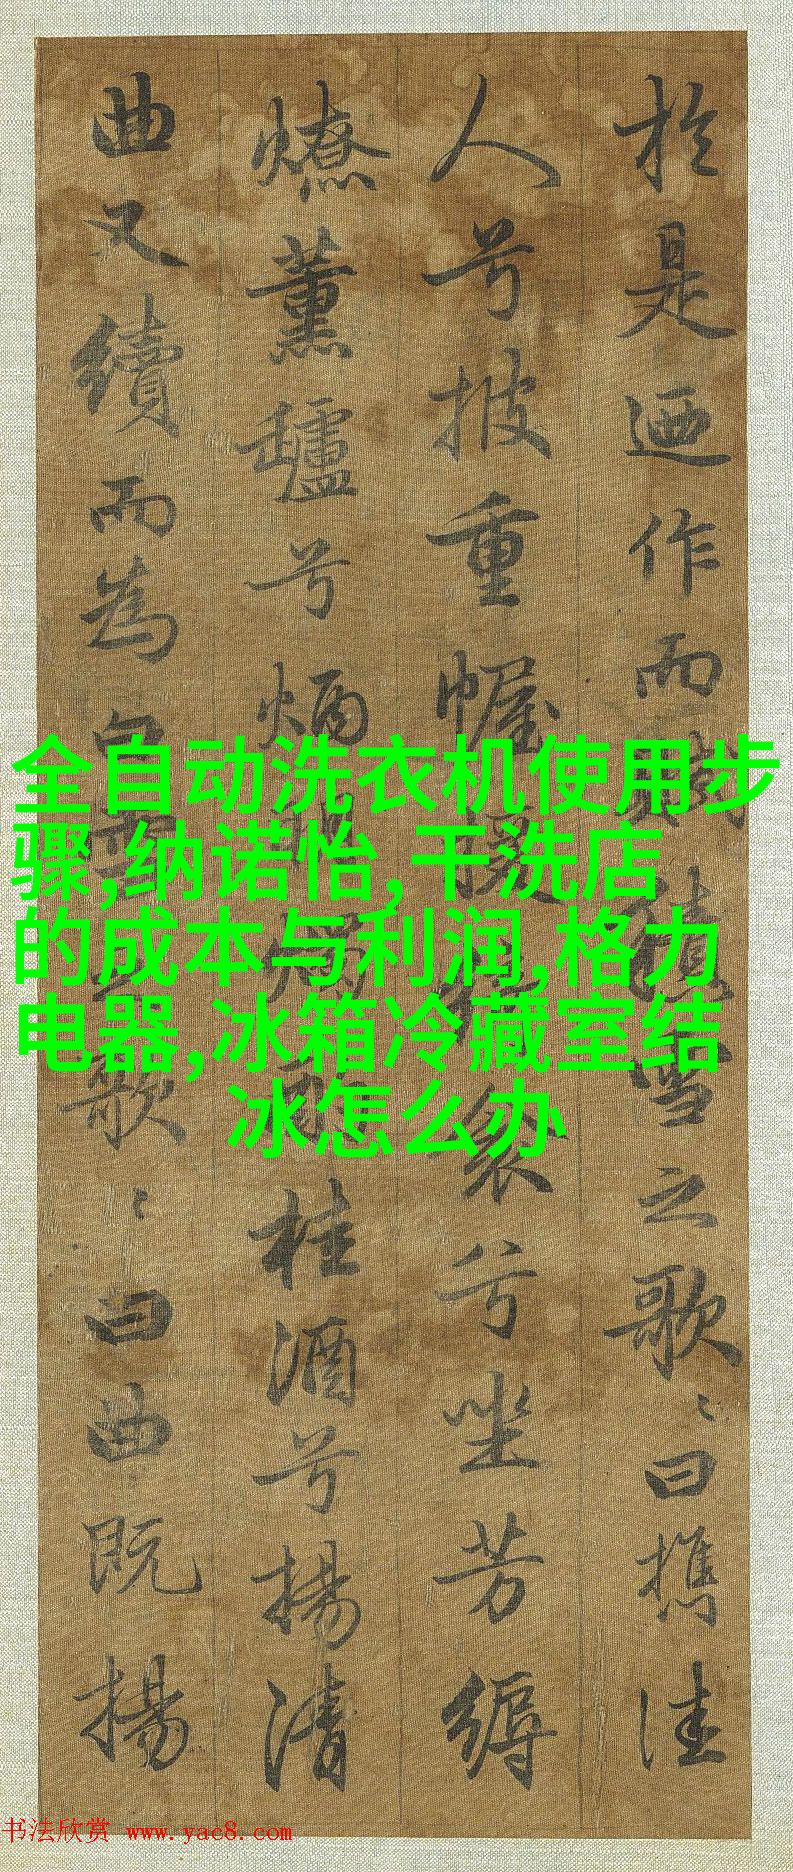 於是迺作而賦積雪之歌〻曰攜佳
人兮披重幄援綺衾兮坐芳縟
燎薰罏兮炳明燭酌桂酒兮揚清
曲又續而為白雪之歌〻曰曲既揚
全自动洗衣机使用步
骤,纳诺怡,干洗店
的成本与利润,格力
电器,冰箱冷藏室结
冰怎么办
书法欣赏 www.yac8.com